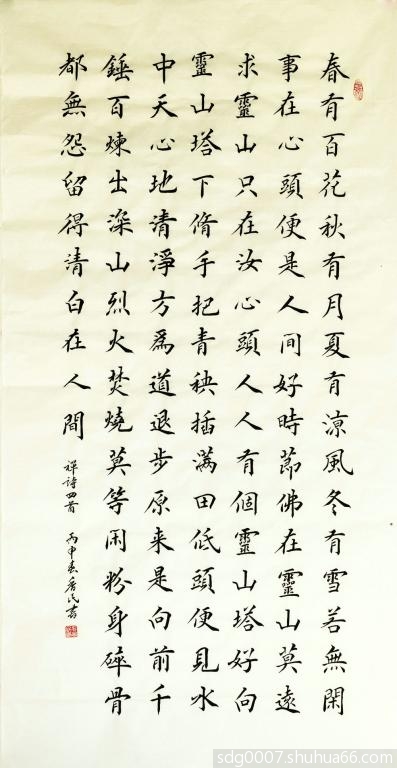 春有百花秋有月夏有涼風冬有雪若無閑
事在心頭便是人間好時節佛在靈山莫遠
求靈山只在汝心頭人人有個靈山塔好向
靈山塔下脩手把青秧插滿田低頭便見水
中天心地清淨方為道退步原来是向前千
錘百煉出深山烈火焚燒莫等闲粉身碎骨
都無怨留得清白在人間
禅詩四首 丙申春
sdg0007.shuhua66.com